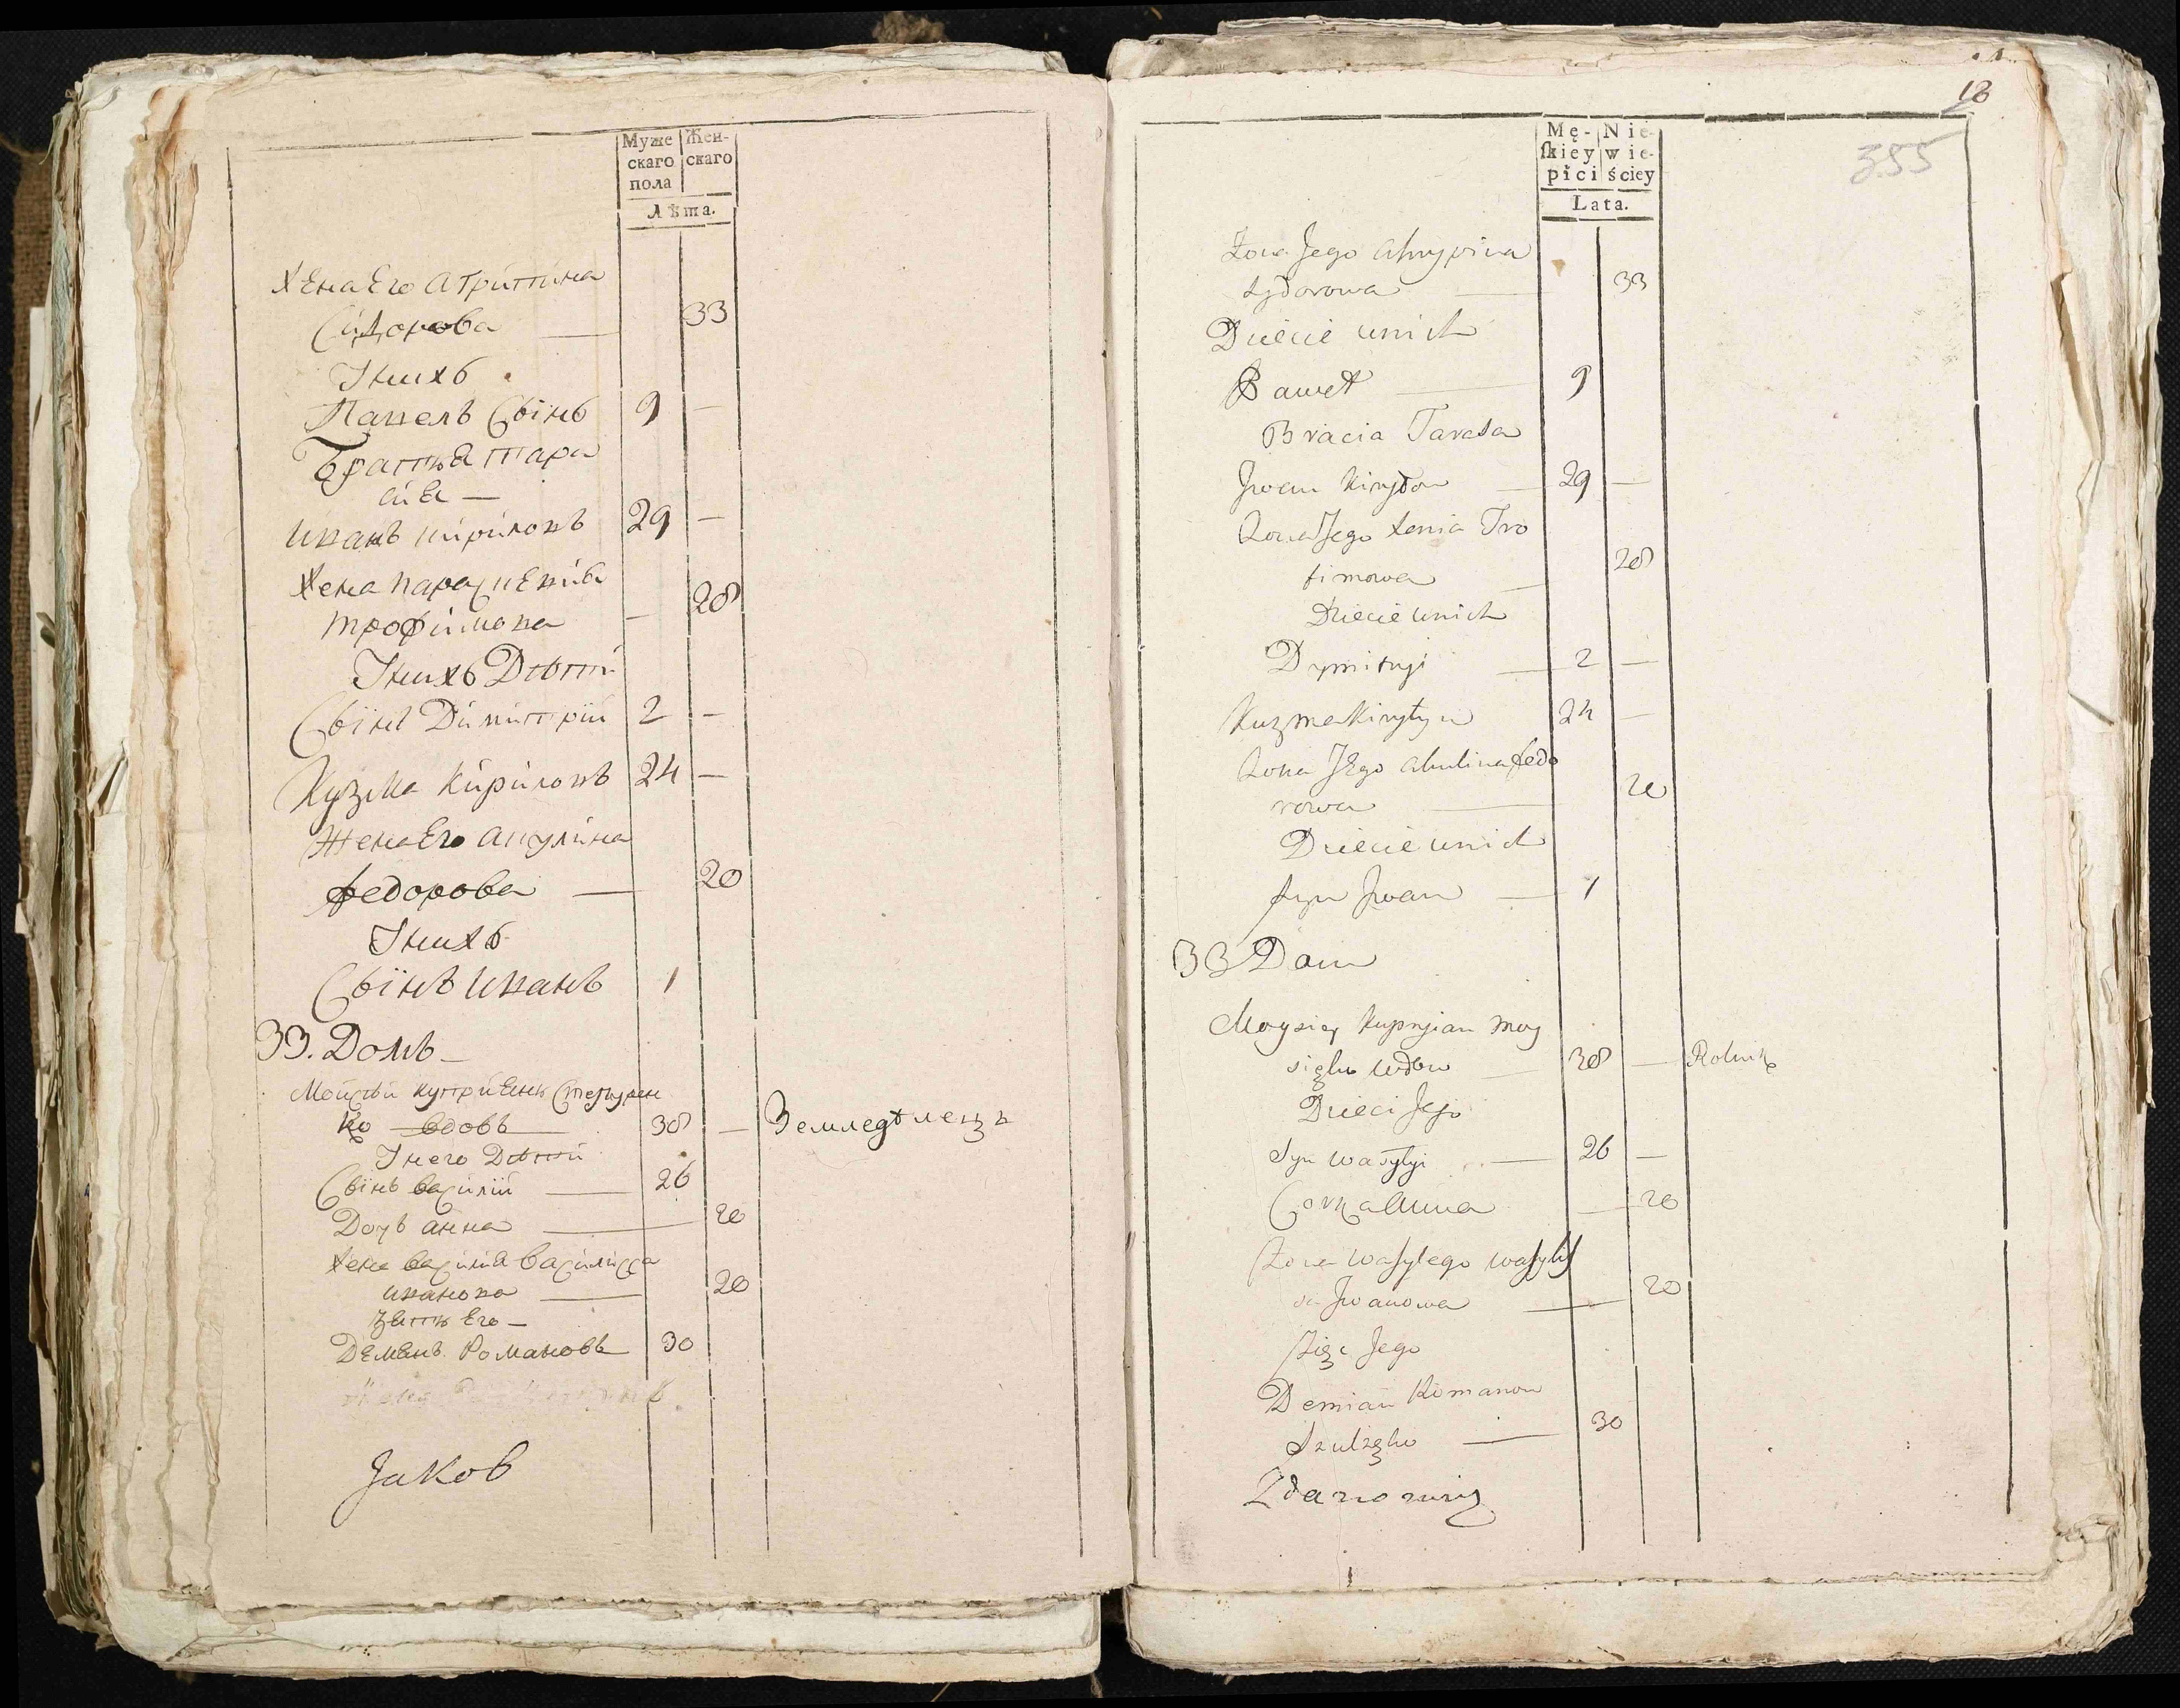 Муже Жен-
скаго скаго
пола
Лѣта.
Жена Его Агрипина
Сидорова — 33
Iнихъ
Павелъ Сынъ 9 —
Братья Тара
сия —
Иванъ Кириловъ 29 —
Жена Парасцевия
Трофимова — 28
Iнихъ Дѣти
Сынъ Димитрий 2 —
Кузма Кириловъ 24 —
Жена Его Акулина
Федорова — 20
Iнихъ
Сынъ Иванъ 1
33. Домъ —
Мойсѣй Куприянъ
ко вдовъ 38 — Земледѣлецъ
Iнего Дѣти
Сынъ Василий — 26
Дочъ Анна — 20
Жена Василия Василисса
Иванова — 20
Зять Его —
Демянъ Романовъ 30
Jakob
18
355
Mę- Nie-
skiey wie-
płci ściey
Lata.
Żona Jego Ahrypina
Sydorowa — 33
Dziecie unich
Paweł — 9
Bracia Tarasa
Jwan Kiryłow — 29 —
Żona Jego Xenia Tro
fimowa — 28
Dziecie unich
Dymitryi — 2 —
Kuzma Kiryłyn 24 —
Żona JEgo Akulina Fedo
rowa — 20
Dziecie unich
Syn Jwan — 1
33 Dom
Moysiey Kupryian Moy
sięko wdow — 38 — Rolnik
Dzieci Jego
Syn Wasylyi — 26 —
Corka Anna — 20
Żona Wasylego Wasylis
sa Jwanowa — 20
Zięc Jego
Demian Romanow
Szulżęko — 30
Zdanowicz